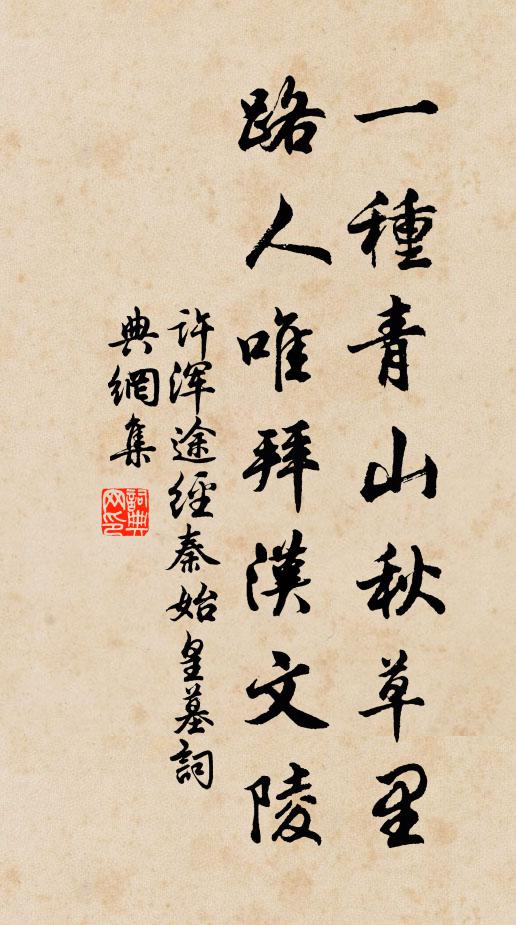 一種青山秋草里
路人唯拜漢文陵
许浑途經秦始皇墓詞
典網集
詞典網印